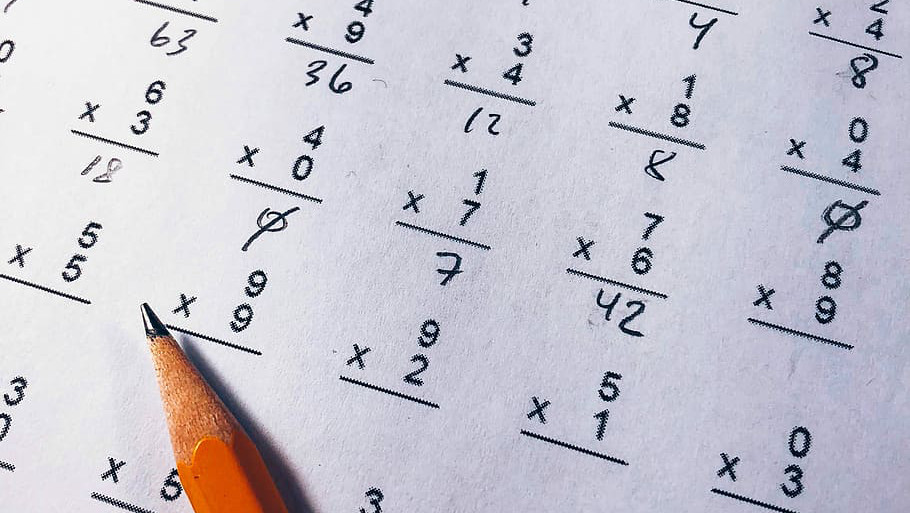 4
2
x 4
8
63
4
x 9
36
3
x 4
12
1
x 8
8
0
x 4
0
6
x 3
18
4
x 0
0
1
x 7
7
7
x 6
42
8
x 9
5
x 5
9
x 9
9
x 2
5
x 1
0
x 3
3
x 5
3